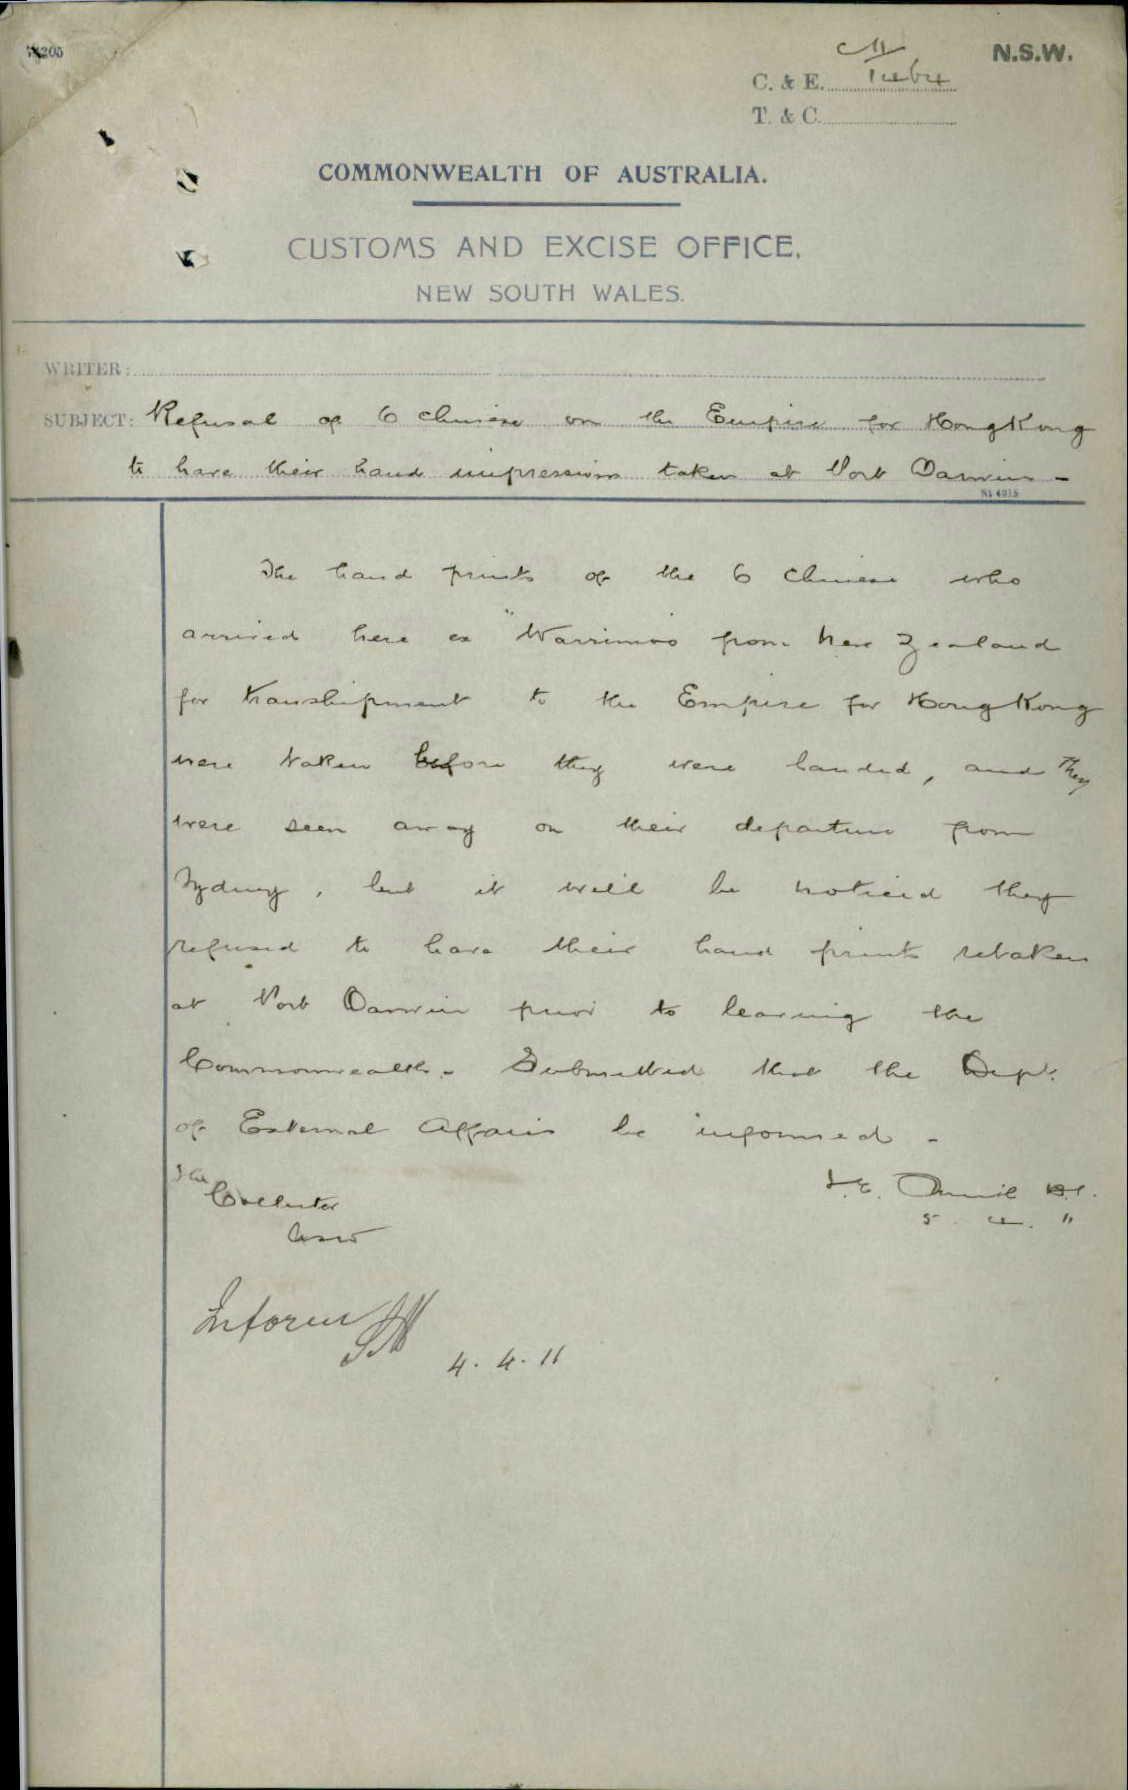 N.S.W.
C. & E.
T. & C.
COMMONWEALTH OF AUSTRALIA.
CUSTOMS AND EXCISE OFFICE,
NEW SOUTH WALES.
WRITER:
SUBJECT: Refusal of 6 Chinese on the Empire for HongKong
to have their hand impressions taken at Port Darwin -
The hand prints of the 6 Chinese who
arrived here ex "Warrimoo from New Zealand
for transhipment to the Empire for HongKong
were taken before they were landed, and they
were seen away on their departure from
Sydney, but it will be noticed they
refused to have their hand prints retaken
at Port Darwin prior to leaving the
Commonwealth. - Submitted that the Dept.
of External Affairs be informed -
The
Collector
NSW
J.T.
5. 4. 11
Inform
4. 4. 11